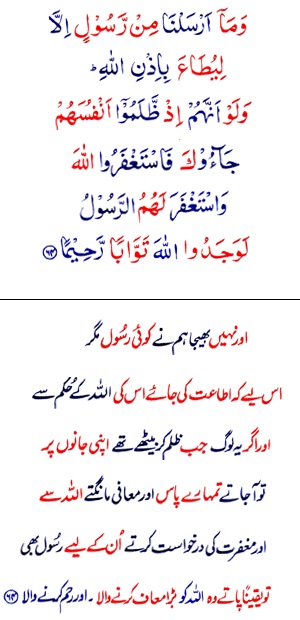 وَمَآ اَرْسَلْنَا مِنْ رَّسُوْلٍ اِلَّا
لِيُطَاعَ بِاِذْنِ اللّٰهِ ؕ
وَلَوْ اَنَّهُمْ اِذْ ظَّلَمُوْٓا اَنْفُسَهُمْ
جَآءُوْكَ فَاسْتَغْفَرُوا اللّٰهَ
وَاسْتَغْفَرَ لَهُمُ الرَّسُوْلُ
لَوَجَدُوا اللّٰهَ تَوَّابًا رَّحِيْمًا ﴿۶۴﴾
اور نہیں بھیجا ہم نے کوئی رسُول مگر
اس لیے کہ اطاعت کی جائے اس کی اللہ کے حُکم سے
اور اگر یہ لوگ جب ظلم کر بیٹھے تھے اپنی جانوں پر
تو آجاتے تمہارے پاس اور معافی مانگتے اللہ سے
اور مغفرت کی درخواست کرتے اُن کے لیے رسُول بھی
تو یقیناً پاتے وہ اللہ کو بڑا معاف کرنے والا ۔ اور رحم کرنے والا ﴿۶۴﴾